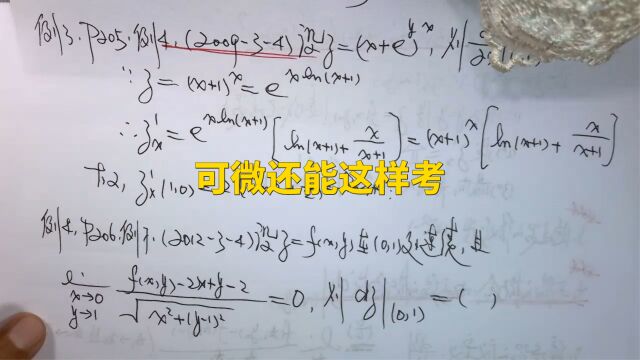 例3. P205. 例4. (2009-3-4) 设 z=(x+e^y)^x, 则 ∂
∵ z=(x+1)^x=e^{x ln(x+1)}
∴ z'_x=e^{x ln(x+1)}[ln(x+1)+x/(x+1)]=(x+1)^x[ln(x+1)+x/(x+1)]
z'_x(1,0)=
可微还能这样考
例4. P206. 例7. (2012-3-4) 设 z=f(x,y) 在(0,1)连续, 且
lim_{x→0, y→1} (f(x,y)-2x+y-2)/√(x²+(y-1)²)=0, 则 dz|(0,1)=( )